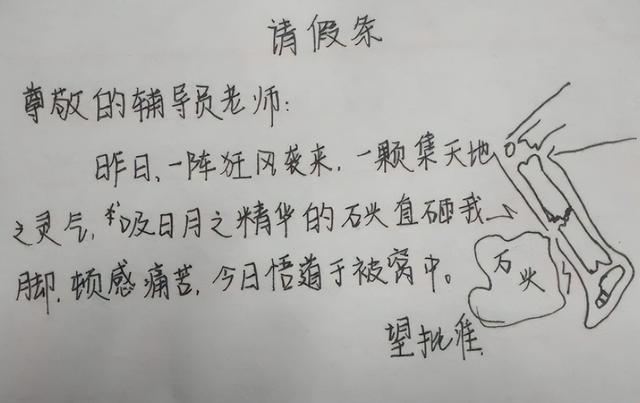 请假条
尊敬的辅导员老师:
昨日、一阵狂风袭来,一颗集天地
之灵气,吸日月之精华的石头直砸我
脚,顿感痛苦,今日悟道于被窝中。
石头
望批准